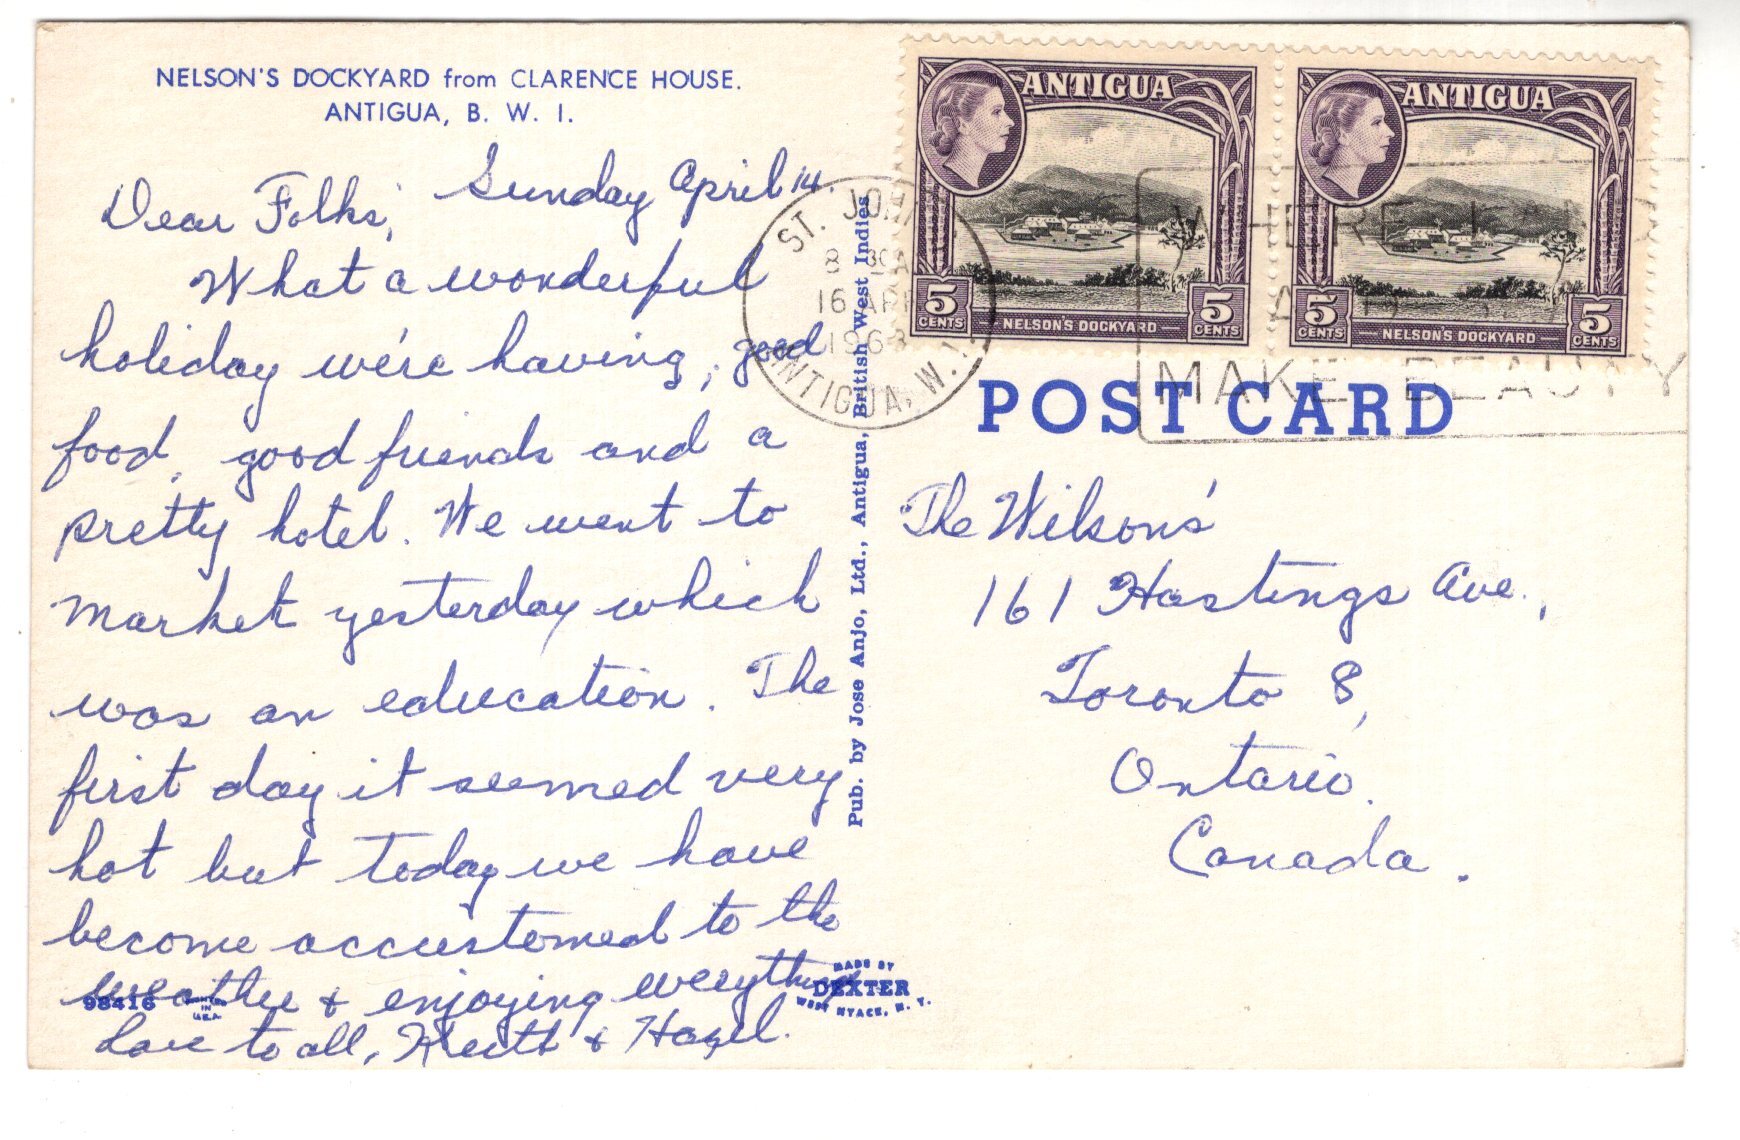 NELSON'S DOCKYARD from CLARENCE HOUSE.
ANTIGUA, B. W. I.
Sunday April 14.
Dear Folks,
What a wonderful
holiday we're having, good
food, good friends and a
pretty hotel. We went to
market yesterday which
was an education. The
first day it seemed very
hot but today we have
become accustomed to the
weather & enjoying everything
Love to all, Keith & Hazel.
98416
IN
U.S.A.
Pub. by Jose Anjo, Ltd., Antigua, British West Indies
MADE BY
DEXTER
WEST NYACK, N. Y.
ANTIGUA
5
CENTS
NELSON'S DOCKYARD
5
CENTS
ANTIGUA
5
CENTS
NELSON'S DOCKYARD
5
CENTS
ST. JOHN
8 30 A
16 APR
1963
ANTIGUA, W. I.
WHERE LAND
MAKE BEAUTY
POST CARD
The Wilson's
161 Hastings Ave.,
Toronto 8,
Ontario.
Canada.